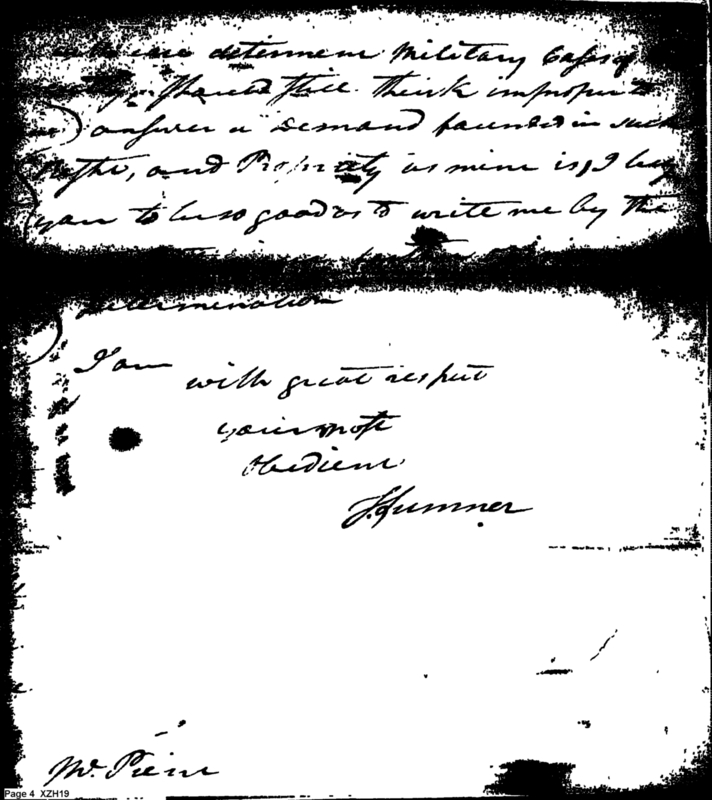 determine Military Cases of
Should still think improper to
answer a Demand founded in such
and Propriety as mine is, I beg
you to be so good as to write me by the
determination
I am
with great respect
your most
Obedient
J. Sumner
Mr. Pierce
Page 4 XZH19